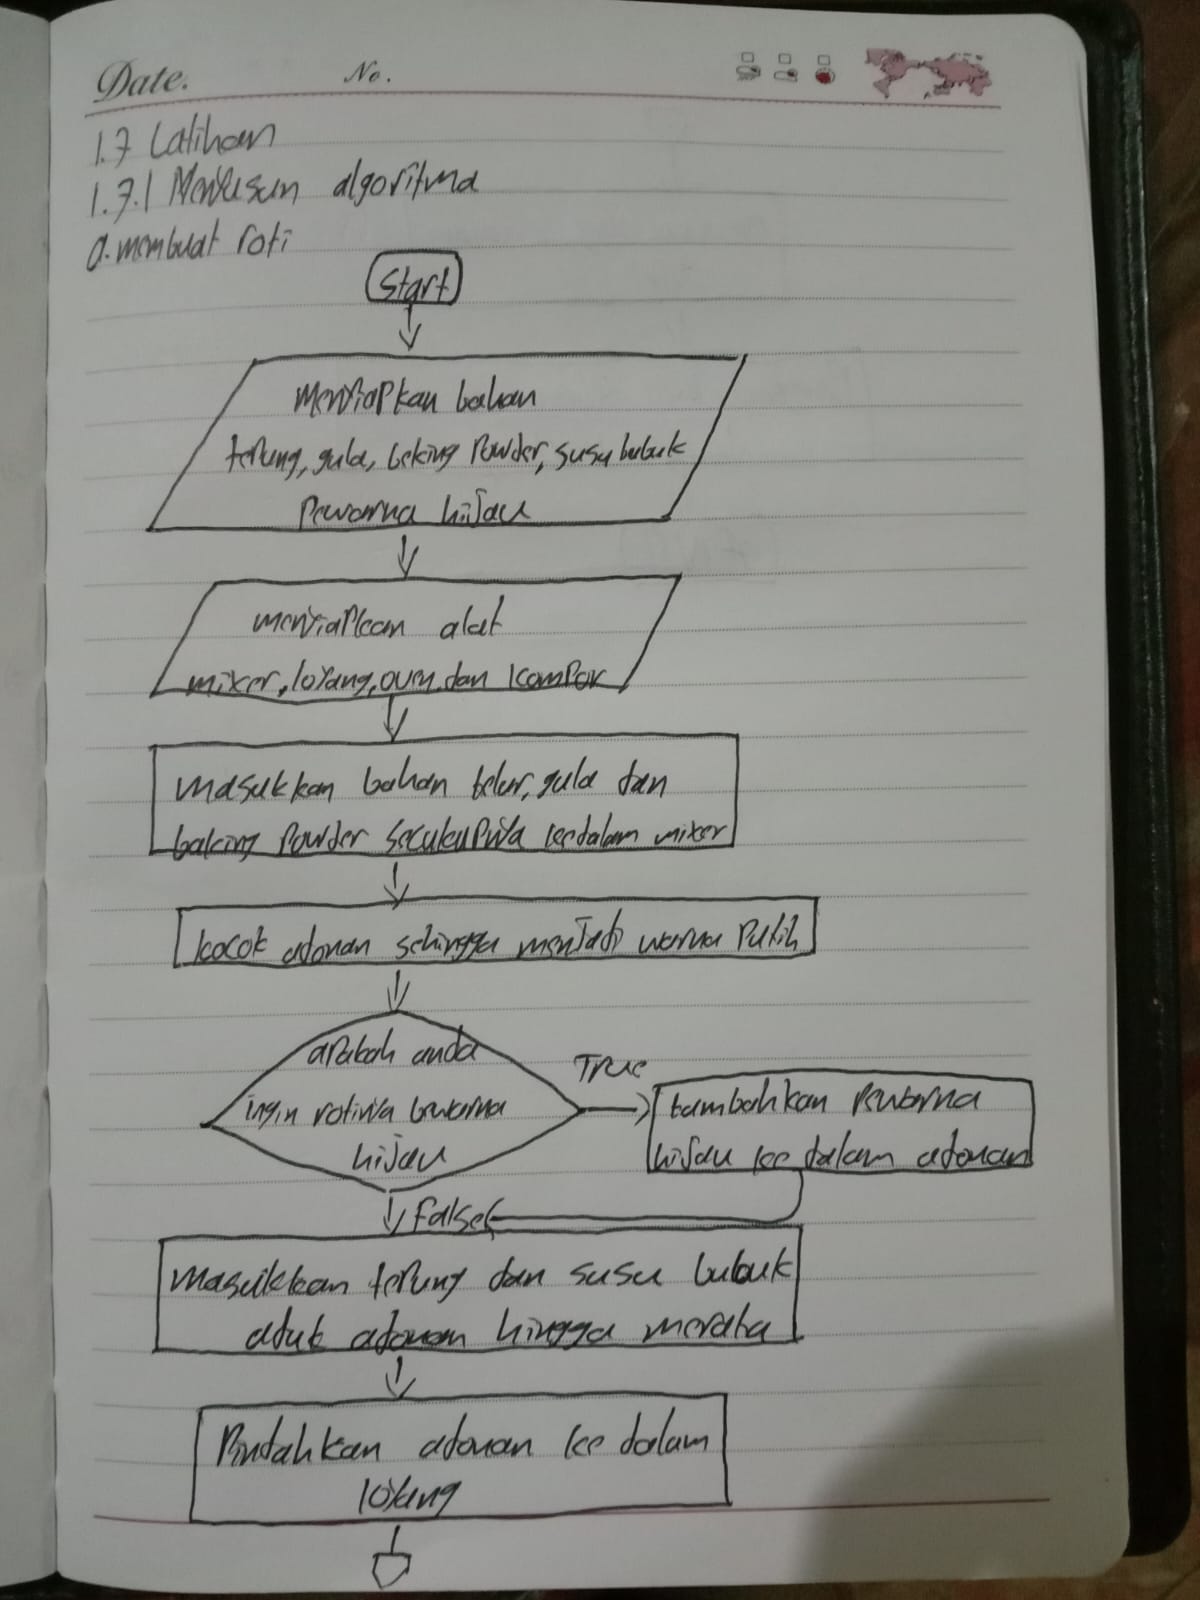 Date.
No.
1.7 Latihan
1.7.1 Menyusun algoritma
a. membuat roti
Start
menyiapkan bahan
tepung, gula, beking powder, susu bubuk
Pewarna hijau
menyiapkan alat
mixer, loyang, oven, dan kompor
masukkan bahan telur, gula dan
baking powder secukupnya kedalam mixer
kocok adonan sehingga menjadi warna putih
apakah anda
ingin rotinya bewarna
hijau
True
tambahkan pewarna
hijau ke dalam adonan
False
masukkan tepung dan susu bubuk
aduk adonan hingga merata
Pindahkan adonan ke dalam
loyang